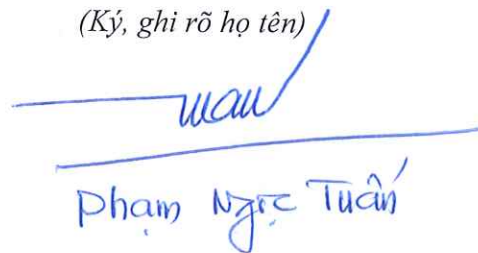 (Ký, ghi rõ họ tên)
Phạm Ngọc Tuấn